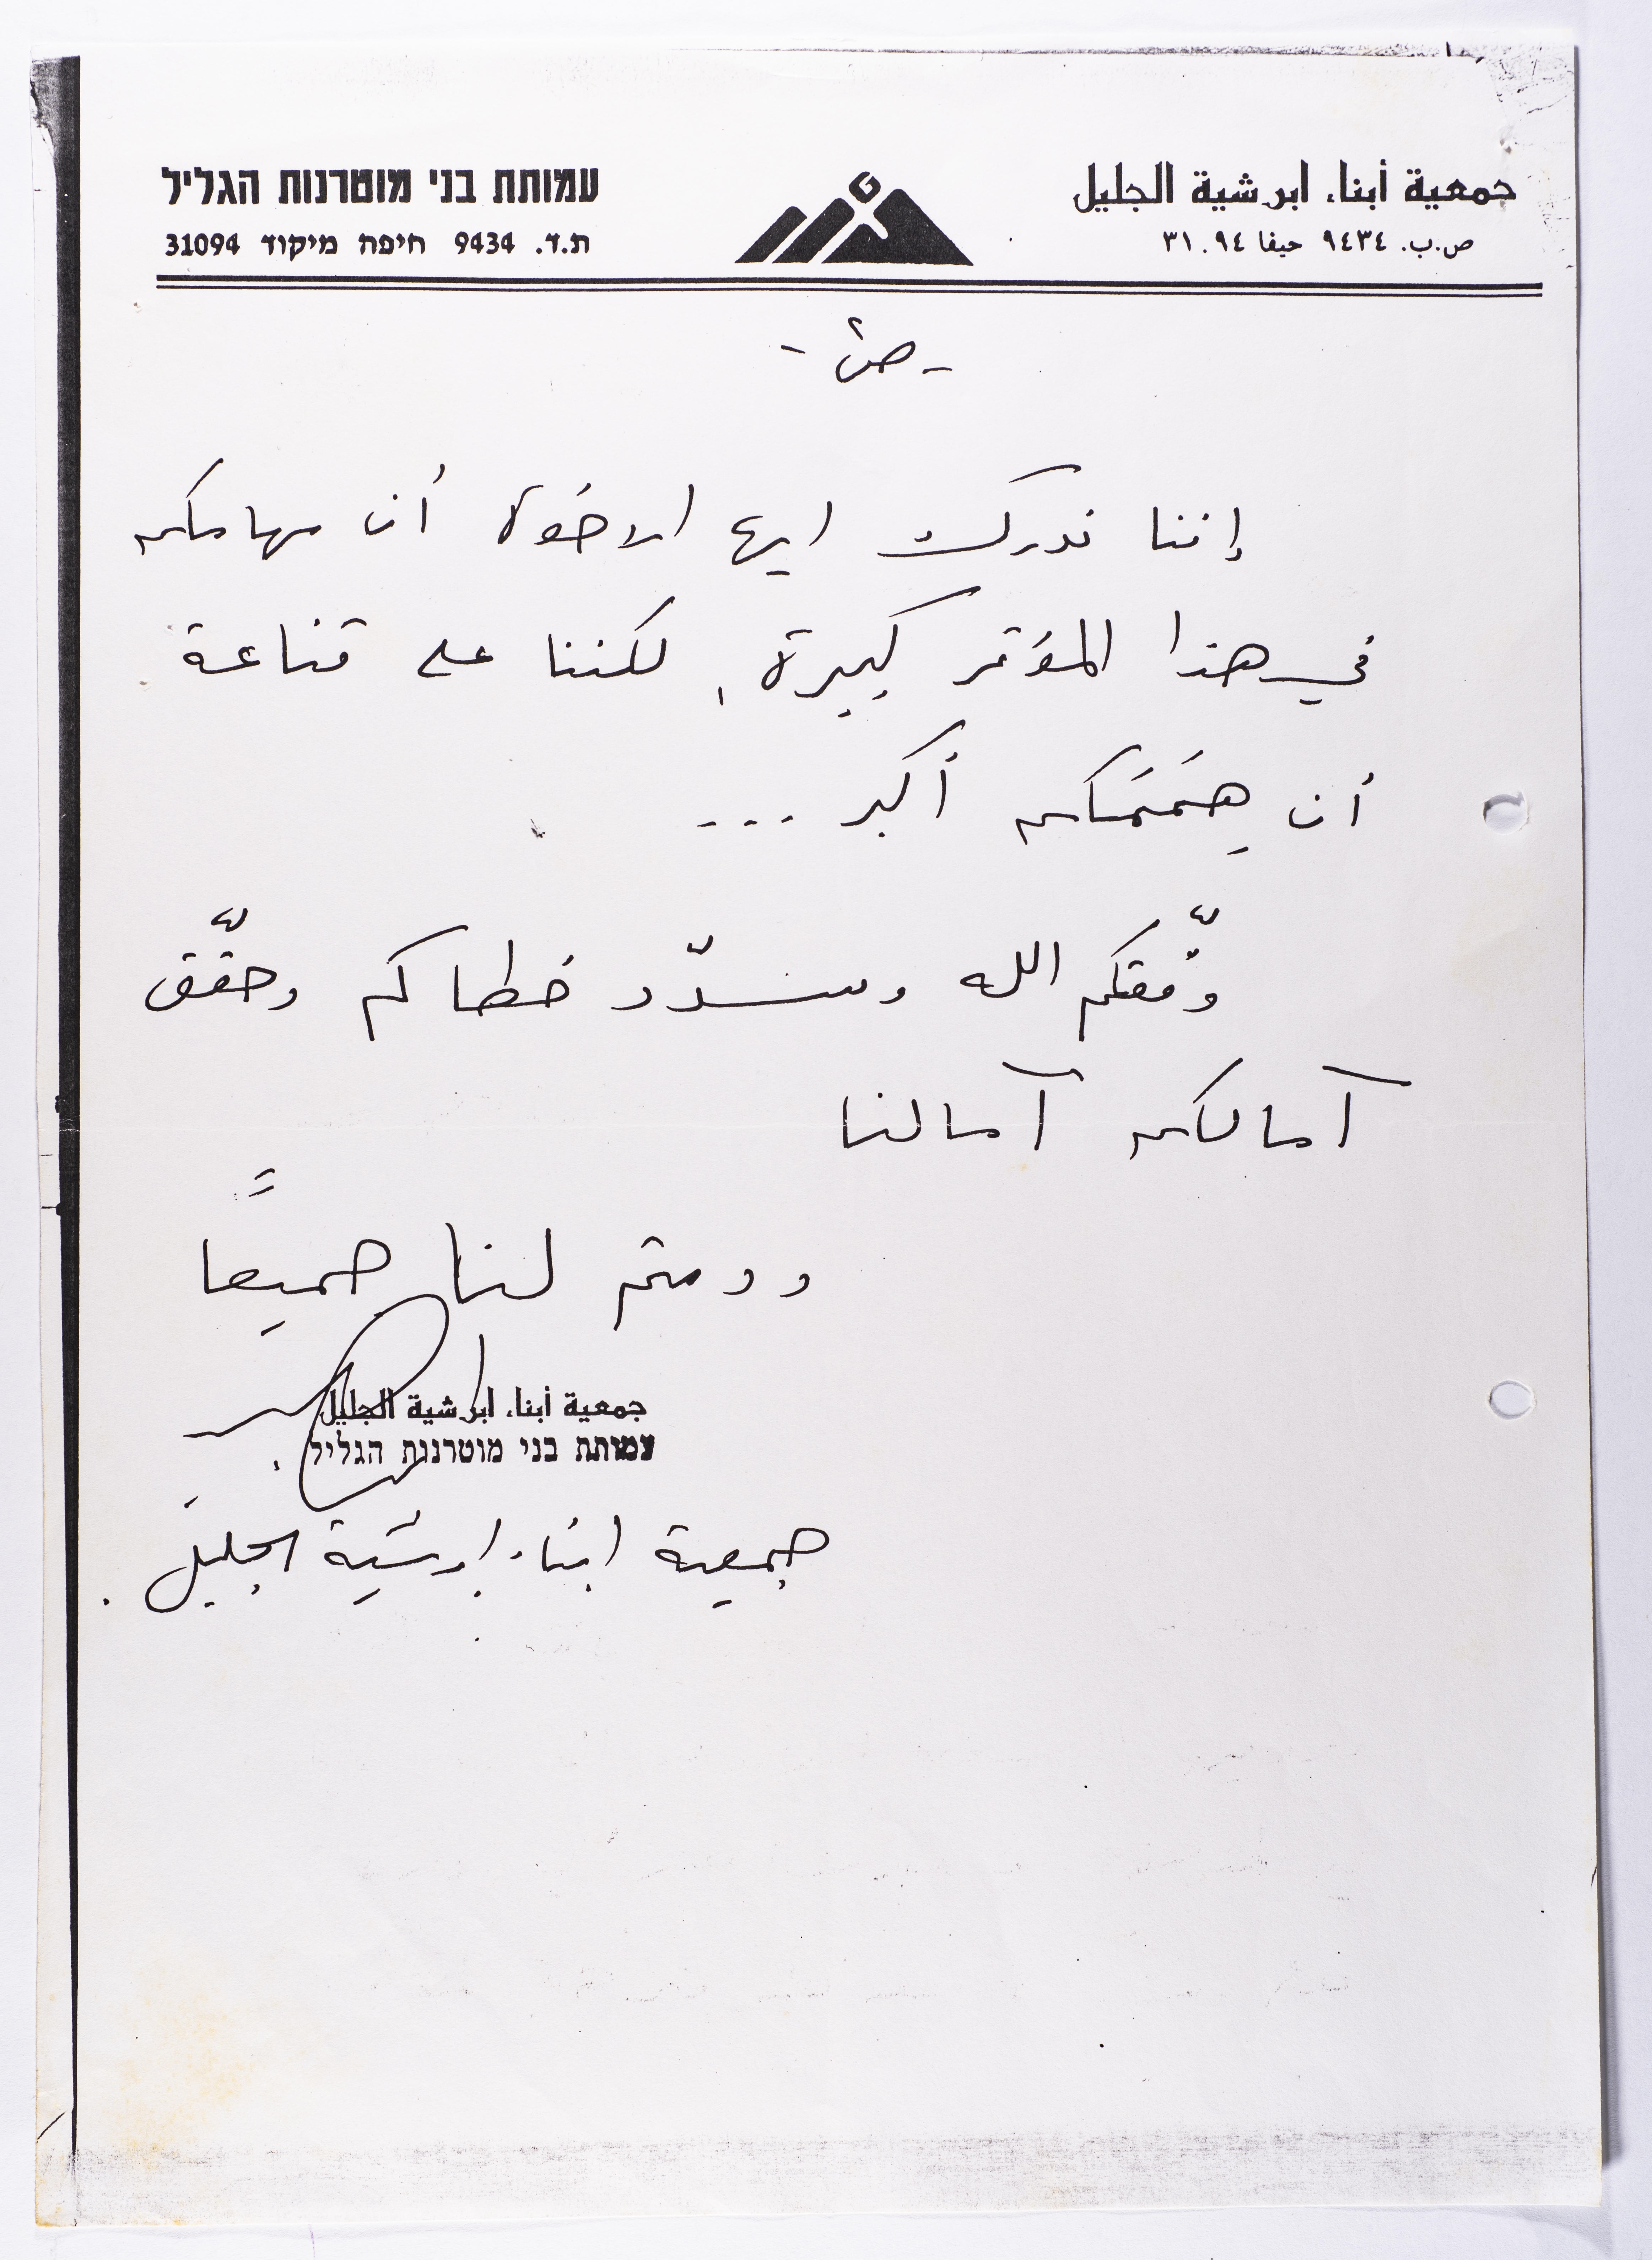 جمعية أبناء ابرشية الجليل
ص.ب. ٩٤٣٤ حيفا ٣١٠٩٤
עמותת בני מוטרנות הגליל
ת.ד. 9434 חיפה מיקוד 31094
إننا ندرك ايها الاخوة أن مهامكم
في هذا المؤتمر كبيرة، لكننا على قناعة
أن هِمَمَكم أكبر ...
وفّقكم الله وسدّد خطاكم وحقّق
آمالكم آمالنا
ودمتم لنا جميعًا
جمعية أبناء ابرشية الجليل
עמותת בני מוטרנות הגליל
جمعية ابناء ابرشية الجليل.